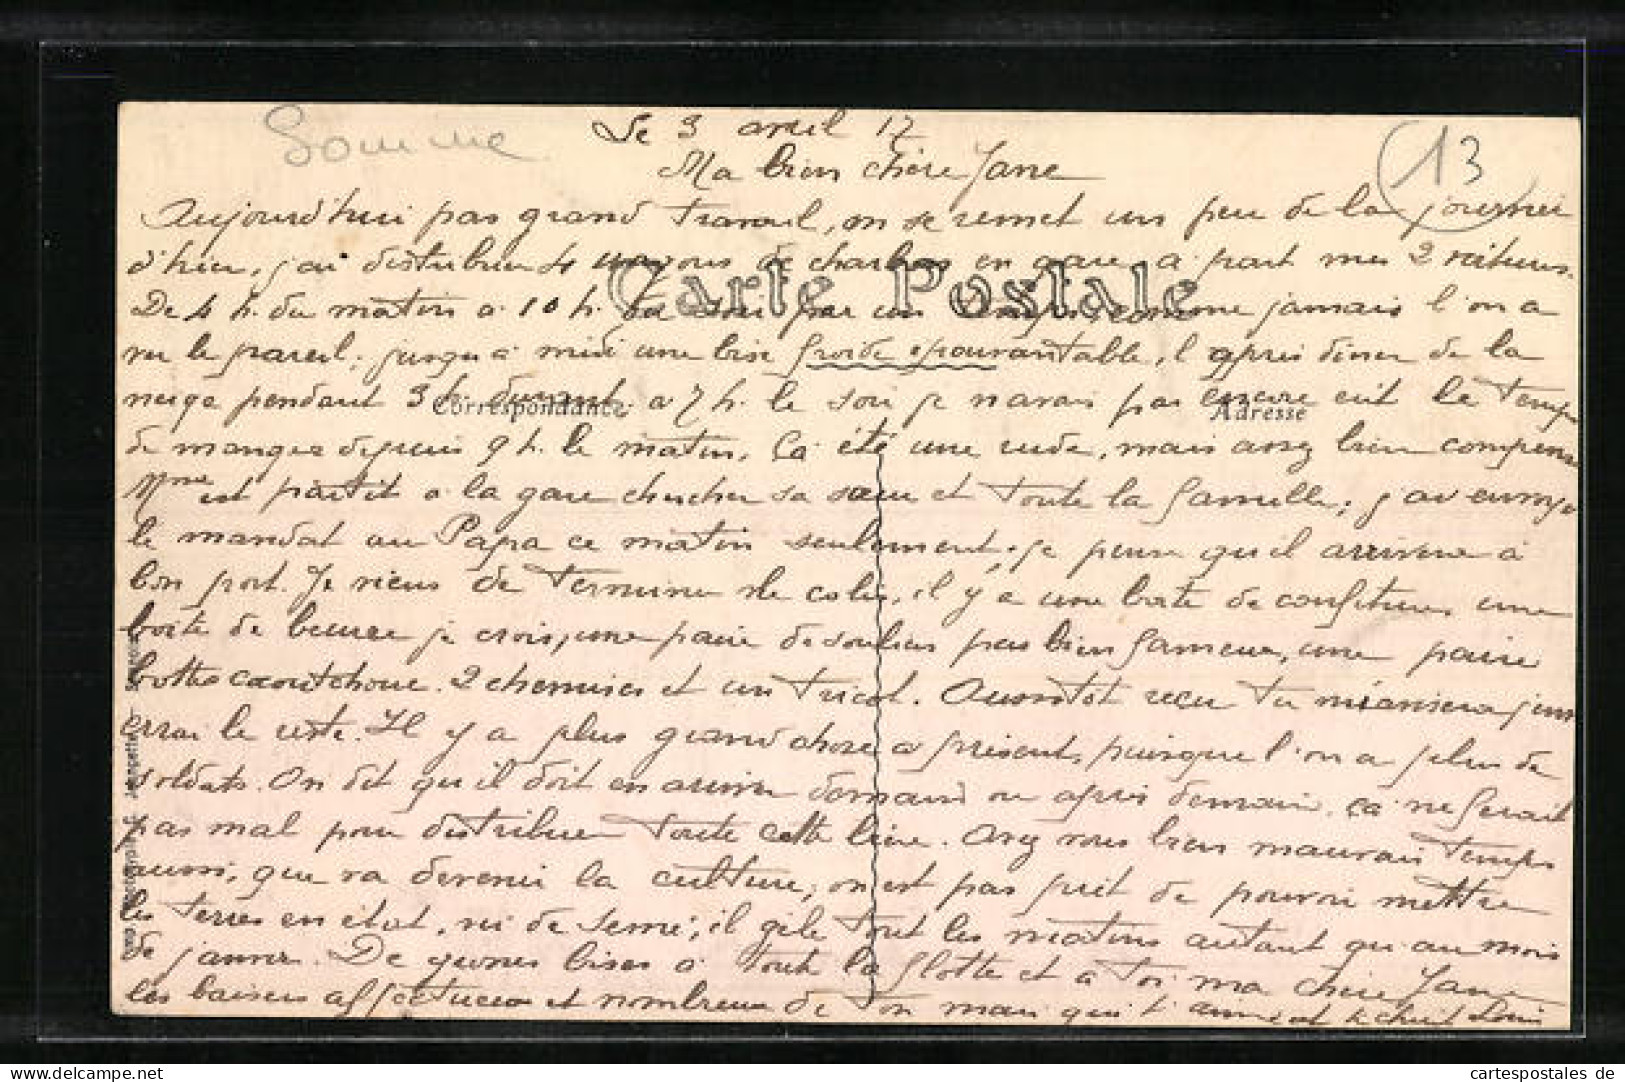 Somme
Le 3 avril 17
13
Ma bien chère Jane
Aujourd'hui pas grand travail, on se remet un peu de la journée
d'hier, j'ai distribuer 4 wagons de charbon en gare, a part mes 2 voitures.
Carte Postale
De 4 h. du matin a 10 h. du soir par un temps comme jamais l'on a
vu le pareil, jusqu'a midi une bise froide epouvantable, l'après diner de la
neige pendant 3 h. durant a 7 h. le soir je n'avais pas encore eut le temps
Correspondance
Adresse
de manger depuis 9 h. le matin. Ça été une rude, mais assez bien
Mme est partit a la gare chercher sa sœur et toute la famille, j'ai envoyé
le mandat au Papa ce matin seulement, je pense qu'il arrivera à
bon port. Je viens de terminer le colis, il y a une boite de confitures une
boite de beurre je crois, une paire de souliers pas bien fameux, une paire
bottes caoutchouc. 2 chemises et un tricot. Aussitôt reçu tu
le reste. Il y a plus grand chose a présent, puisque l'on a plus de
soldats. On dit qu'il doit en arriver demain ou après demain. ça ne ferait
pas mal pour distribuer toute cette bière. Avez vous bien mauvais temps
aussi, que va devenir la culture, on est pas prêt de pouvoir mettre
les terres en état, ni de semé, il gèle tout les matins autant qu'au mois
de janvier. De bises a toute la flotte et a toi ma chère Jane
les baisers affectueux et nombreux de ton mari qui t'aime et te chérit Louis